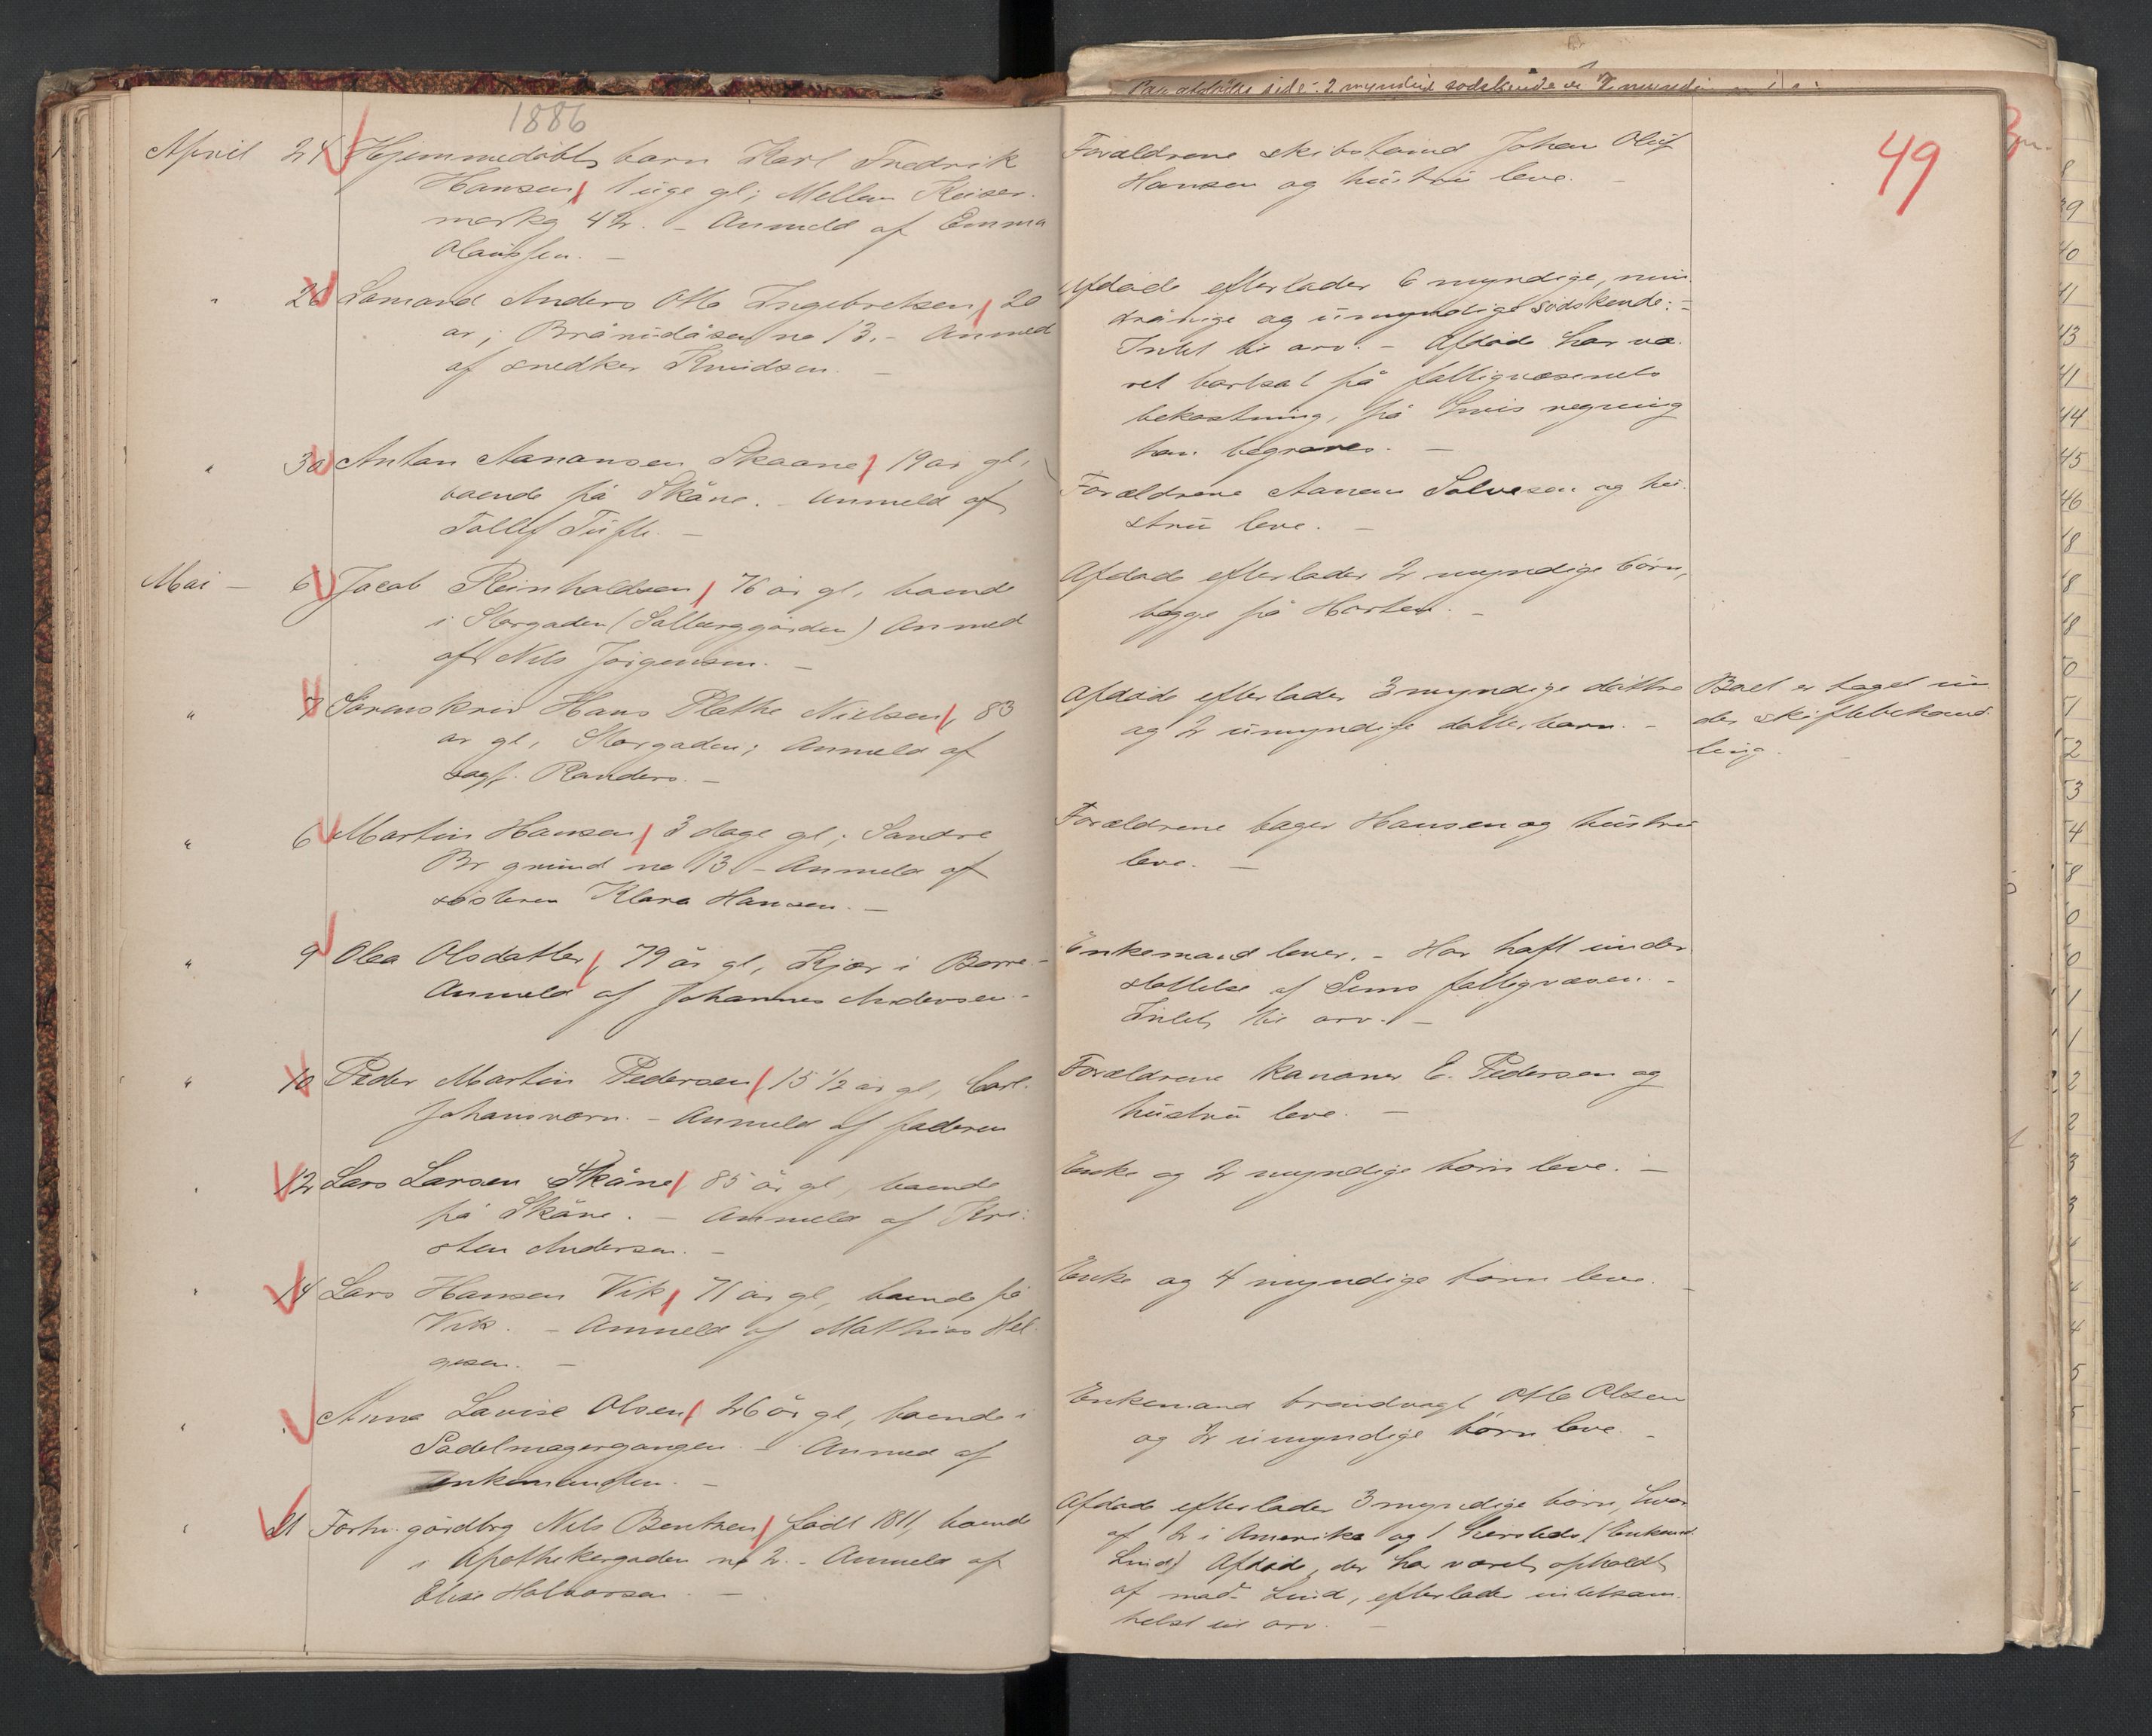 1886
49
April 24 Hjemmedøbt barn Karl Fredrik
Hansen, 1 uge gl; Mellem Keiser-
markg 42. - Anmeld af Emma
Olaussen. -
Forældrene skibstømd Johan Oluf
Hansen og hustru leve. -
" 26 Sømand Anders Otto Ingebretsen, 20
år; Bråmidåsen no 13. - Anmeld
af snedker Knudsen. -
Afdøde efterlader 6 myndige, min-
dreårige og umyndige sødskende: -
Intet til arv. - Afdøde har væ-
ret bortsat på fattigvæsenets
bekostning, på hvis regning
han begraves. -
" 30 Anton Aanonsen Skaane, 19 år gl,
boende på Skåne. - Anmeld af
Tollef Tufte. -
Forældrene Aanon Solvesen og hu-
stru leve. -
Mai - 6 Jacob Reinholdsen, 76 år gl, boende
i Storgaden (Solberggården) Anmeld
af Nils Jørgensen. -
Afdøde efterlader 2 myndige børn,
begge på Horten. -
" 7 Sorenskriv Hans Plathe Nielsen, 83
år gl, Storgaden; Anmeld af
sagf. Randers. -
Afdøde efterlader 3 myndige døttre
og 2 umyndige datterbørn. -
Boet er taget un-
der skiftebehand-
ling. -
" 6 Martin Hansen, 3 dage gl; Søndre
Br grund no 13 - Anmeld af
søsteren Klara Hansen. -
Forældrene bager Hansen og hustru
leve. -
" 9 Olea Olsdatter, 79 år gl, Kjær i Borre -
Anmeld af Johannes Andersen. -
Enkemand lever. - Har haft under-
støttelse af Sems fattigvæsen. -
Intet til arv. -
" 10 Peder Martin Pedersen, 15 1/2 år gl, Carl-
Johansværn. - Anmeld af faderen
Forældrene kanoner E. Pedersen og
hustru leve. -
" 12 Lars Larsen Skåne, 85 år gl, boende
på Skåne. - Anmeld af Kri-
sten Andersen. -
Enke og 2 myndige børn leve. -
" 14 Lars Hansen Vik, 71 år gl, boende på
Vik. - Anmeld af Mathias Hel-
gesen. -
Enke og 4 myndige børn leve. -
" " Anna Lovise Olsen, 26 år gl, boende i
Sadelmagergangen. - Anmeld af
enkemanden. -
Enkemand brandvagt Otto Olsen
og 2 umyndige børn leve. -
" 21 Forhv. gårdbrg Nils Bentsen, født 1811, boende
i Apothekergaden no 2. - Anmeld af
Elise Halvorsen -
Afdøde efterlader 3 myndige børn, hvor-
af 2 i Amerika og 1 hersteds (Enkemd
Lind) Afdøde, der har været opholdt
af mad. Lind, efterlader intetsom-
helst til arv. -